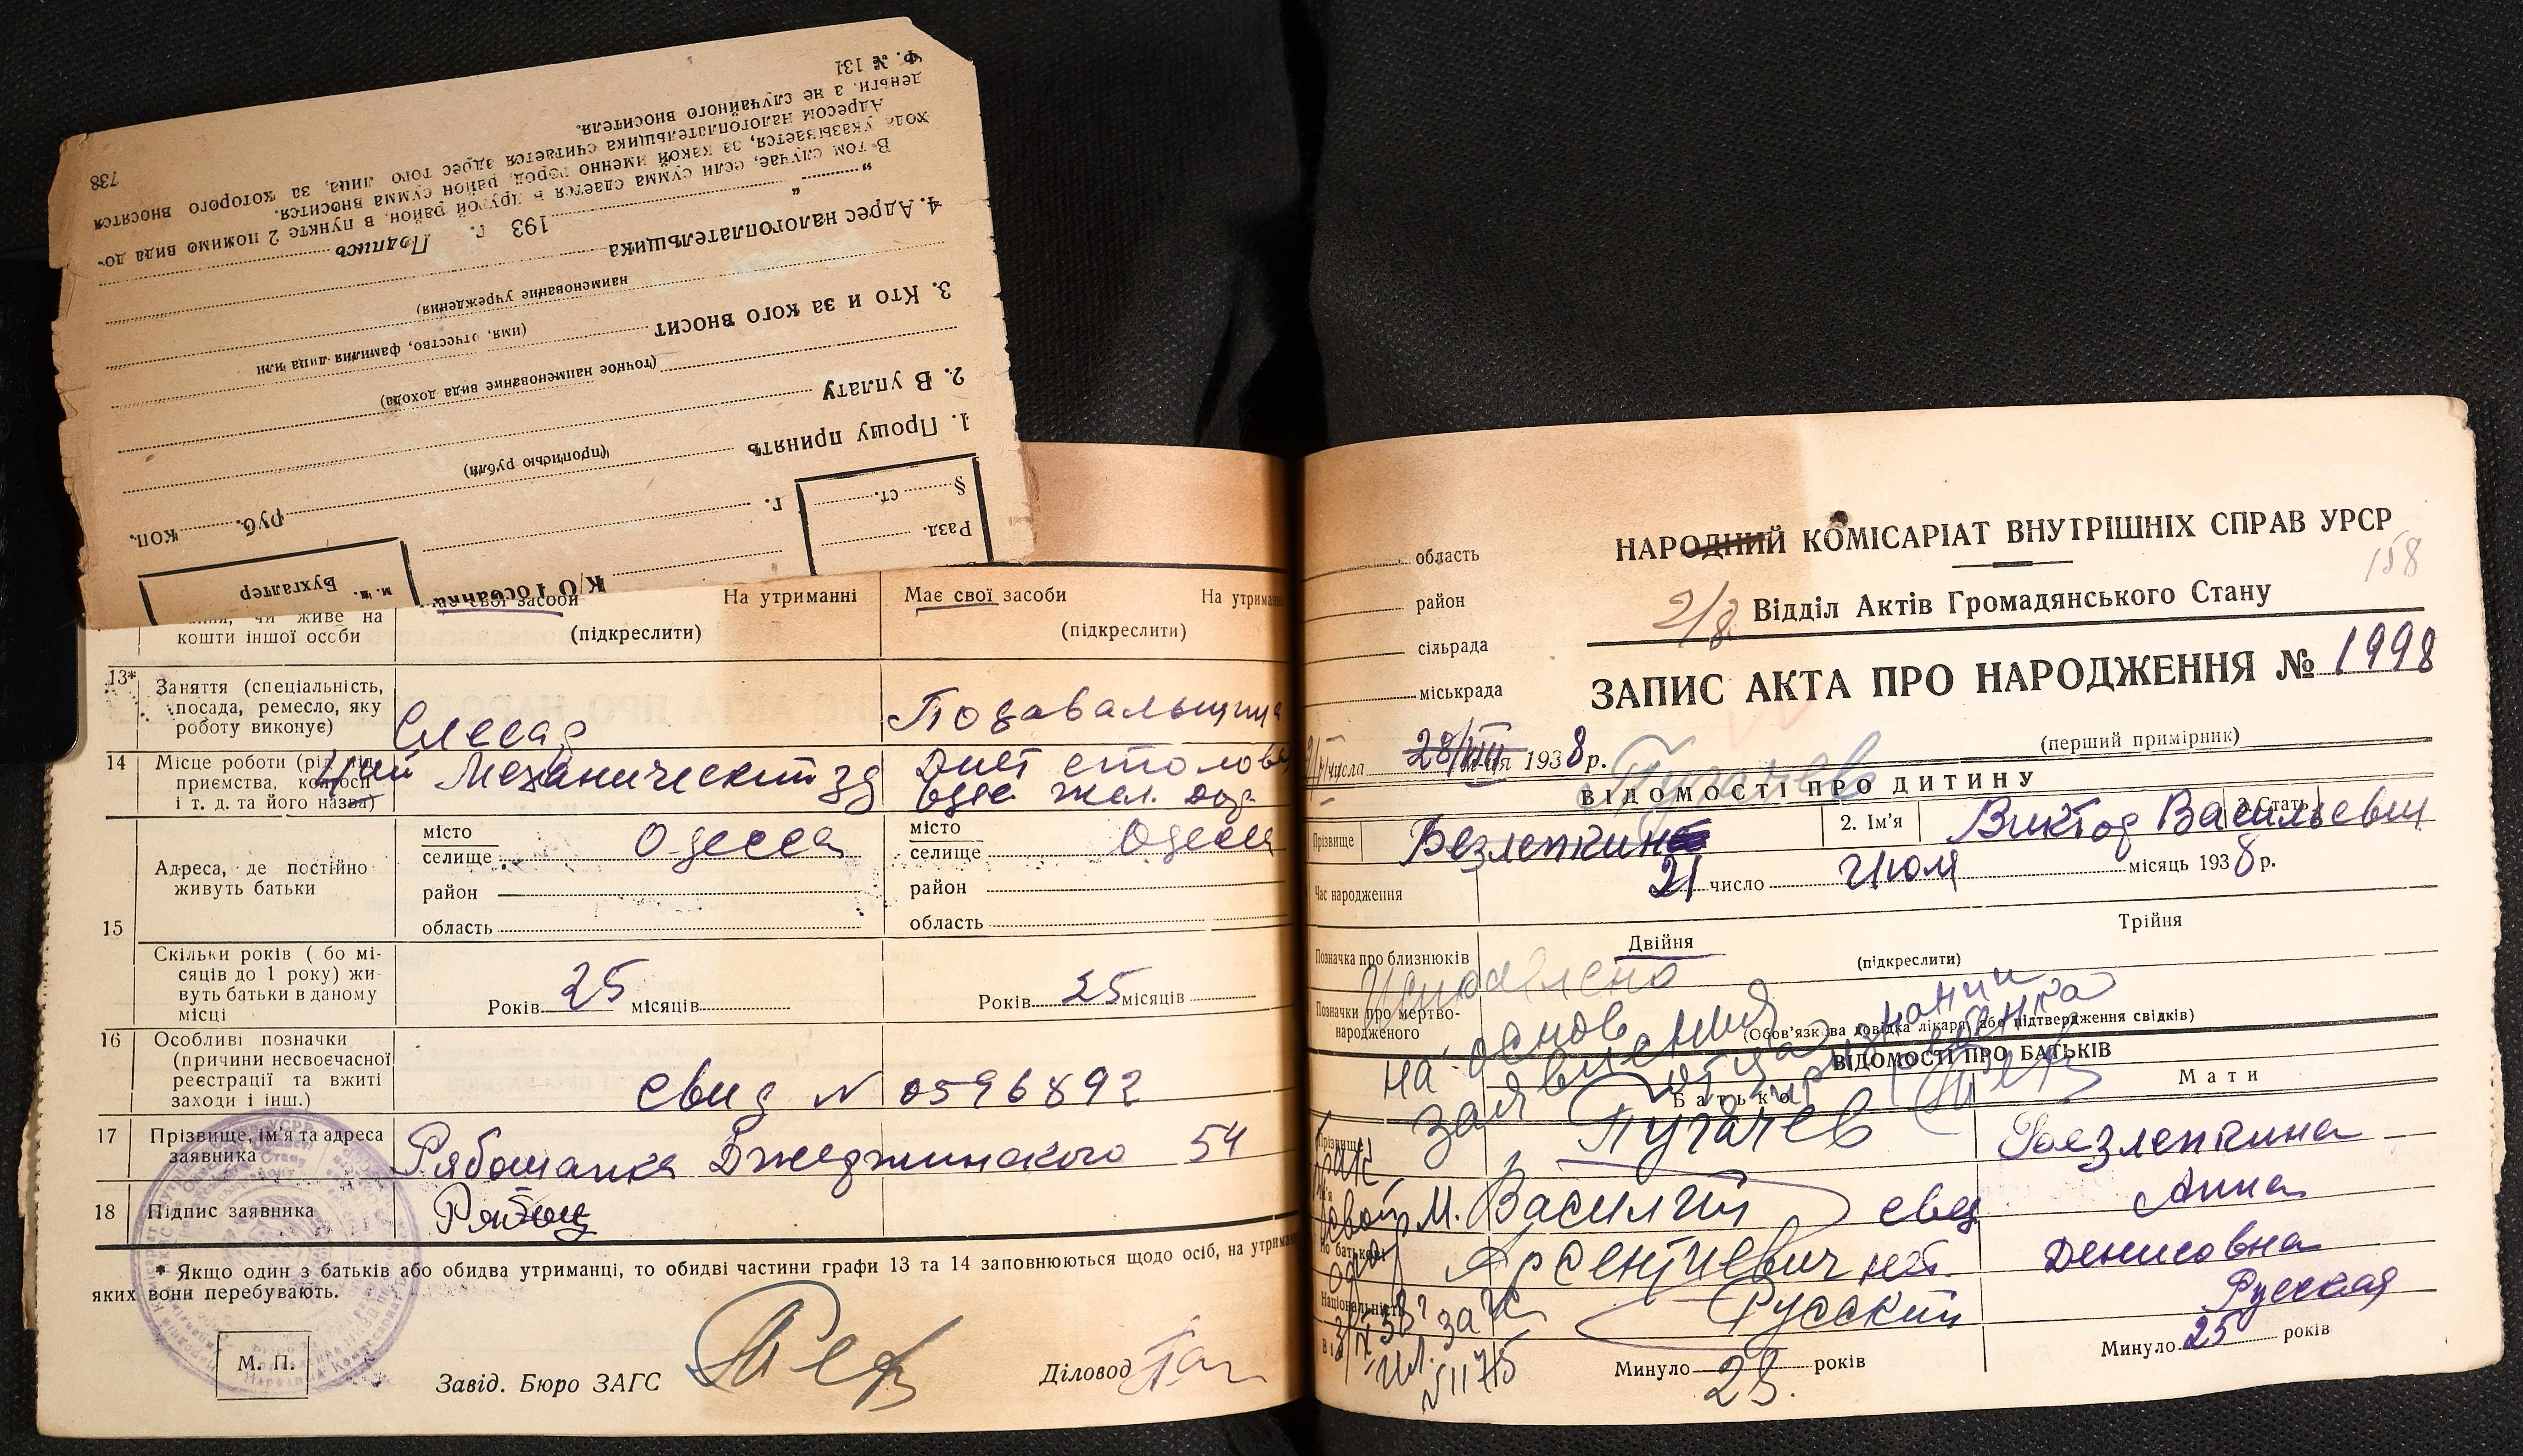 Ф. № 131
деньги, а не случайного вносителя.
Адресом налогоплательщика считается адрес того лица, за которого вносятся
хода указывается, за какой именно город, район сумма вносится.
В том случае, если сумма сдается в другой район, в пункте 2 помимо вида до-
738
„ „ 193 г. Подпись
4. Адрес налогоплательщика
наименование учреждения)
(имя, отчество, фамилия лица или
3. Кто и за кого вносит
(точное наименование вида дохода)
2. В уплату
(прописью рубли)
1. Прошу принять
руб. коп.
г.
§ ст.
Разд.
К/О Госбанка
м. п. Бухгалтер
чи живе на
кошти іншої особи
Має свої засоби На утриманні
(підкреслити)
Має свої засоби
(підкреслити)
13* Заняття (спеціальність,
посада, ремесло, яку
роботу виконує)
Слесар
Подавальщица
14 Місце роботи (рід під-
приємства, колгосп
і т. д. та його назва)
Механический зд
Диет столовая
Одес. жел. дор.
15 Адреса, де постійно
живуть батьки
місто
селище Одесса
район
область
місто
селище Одесса
район
область
Скільки років ( бо мі-
сяців до 1 року) жи-
вуть батьки в даному
місці
Років 25 місяців
Років 25 місяців
16 Особливі позначки
(причини несвоєчасної
реєстрації та вжиті
заходи і інш.)
Свид № 0596892
17 Прізвище, ім'я та адреса
заявника
Рябошапка Джержинского 54
18 Підпис заявника
* Якщо один з батьків або обидва утриманці, то обидві частини графи 13 та 14 заповнюються щодо осіб, на утриманні
яких вони перебувають.
М. П.
Завід. Бюро ЗАГС
Діловод
область
район
сільрада
міськрада
НАРОДНИЙ КОМІСАРІАТ ВНУТРІШНІХ СПРАВ УРСР
158
2/8 Відділ Актів Громадянського Стану
ЗАПИС АКТА ПРО НАРОДЖЕННЯ № 1998
(перший примірник)
числа 28/VIII м-ця 1938 р.
Пугачев
ВІДОМОСТІ ПРО ДИТИНУ
Прізвище Безлепкин
2. Ім'я Виктор Васильевич
3. Стать
Час народження 21 число Июля місяць 1938 р.
Позначка про близнюків
Двійня
Трійня
(підкреслити)
Исправлено
на основ.
заявления
отца о признании
ребенка
Позначки про мертво-
народженого
(Обов'язкова довідка лікаря або підтвердження свідків)
ВІДОМОСТІ ПРО БАТЬКІВ
Батько
Мати
Прізвище Пугачев
Безлепкина
Ім'я Василий
Анна
По батькові Арсентиевич
Денисовна
Національність Русский
Русская
Вік Минуло 29 років
Минуло 25 років
N 1175